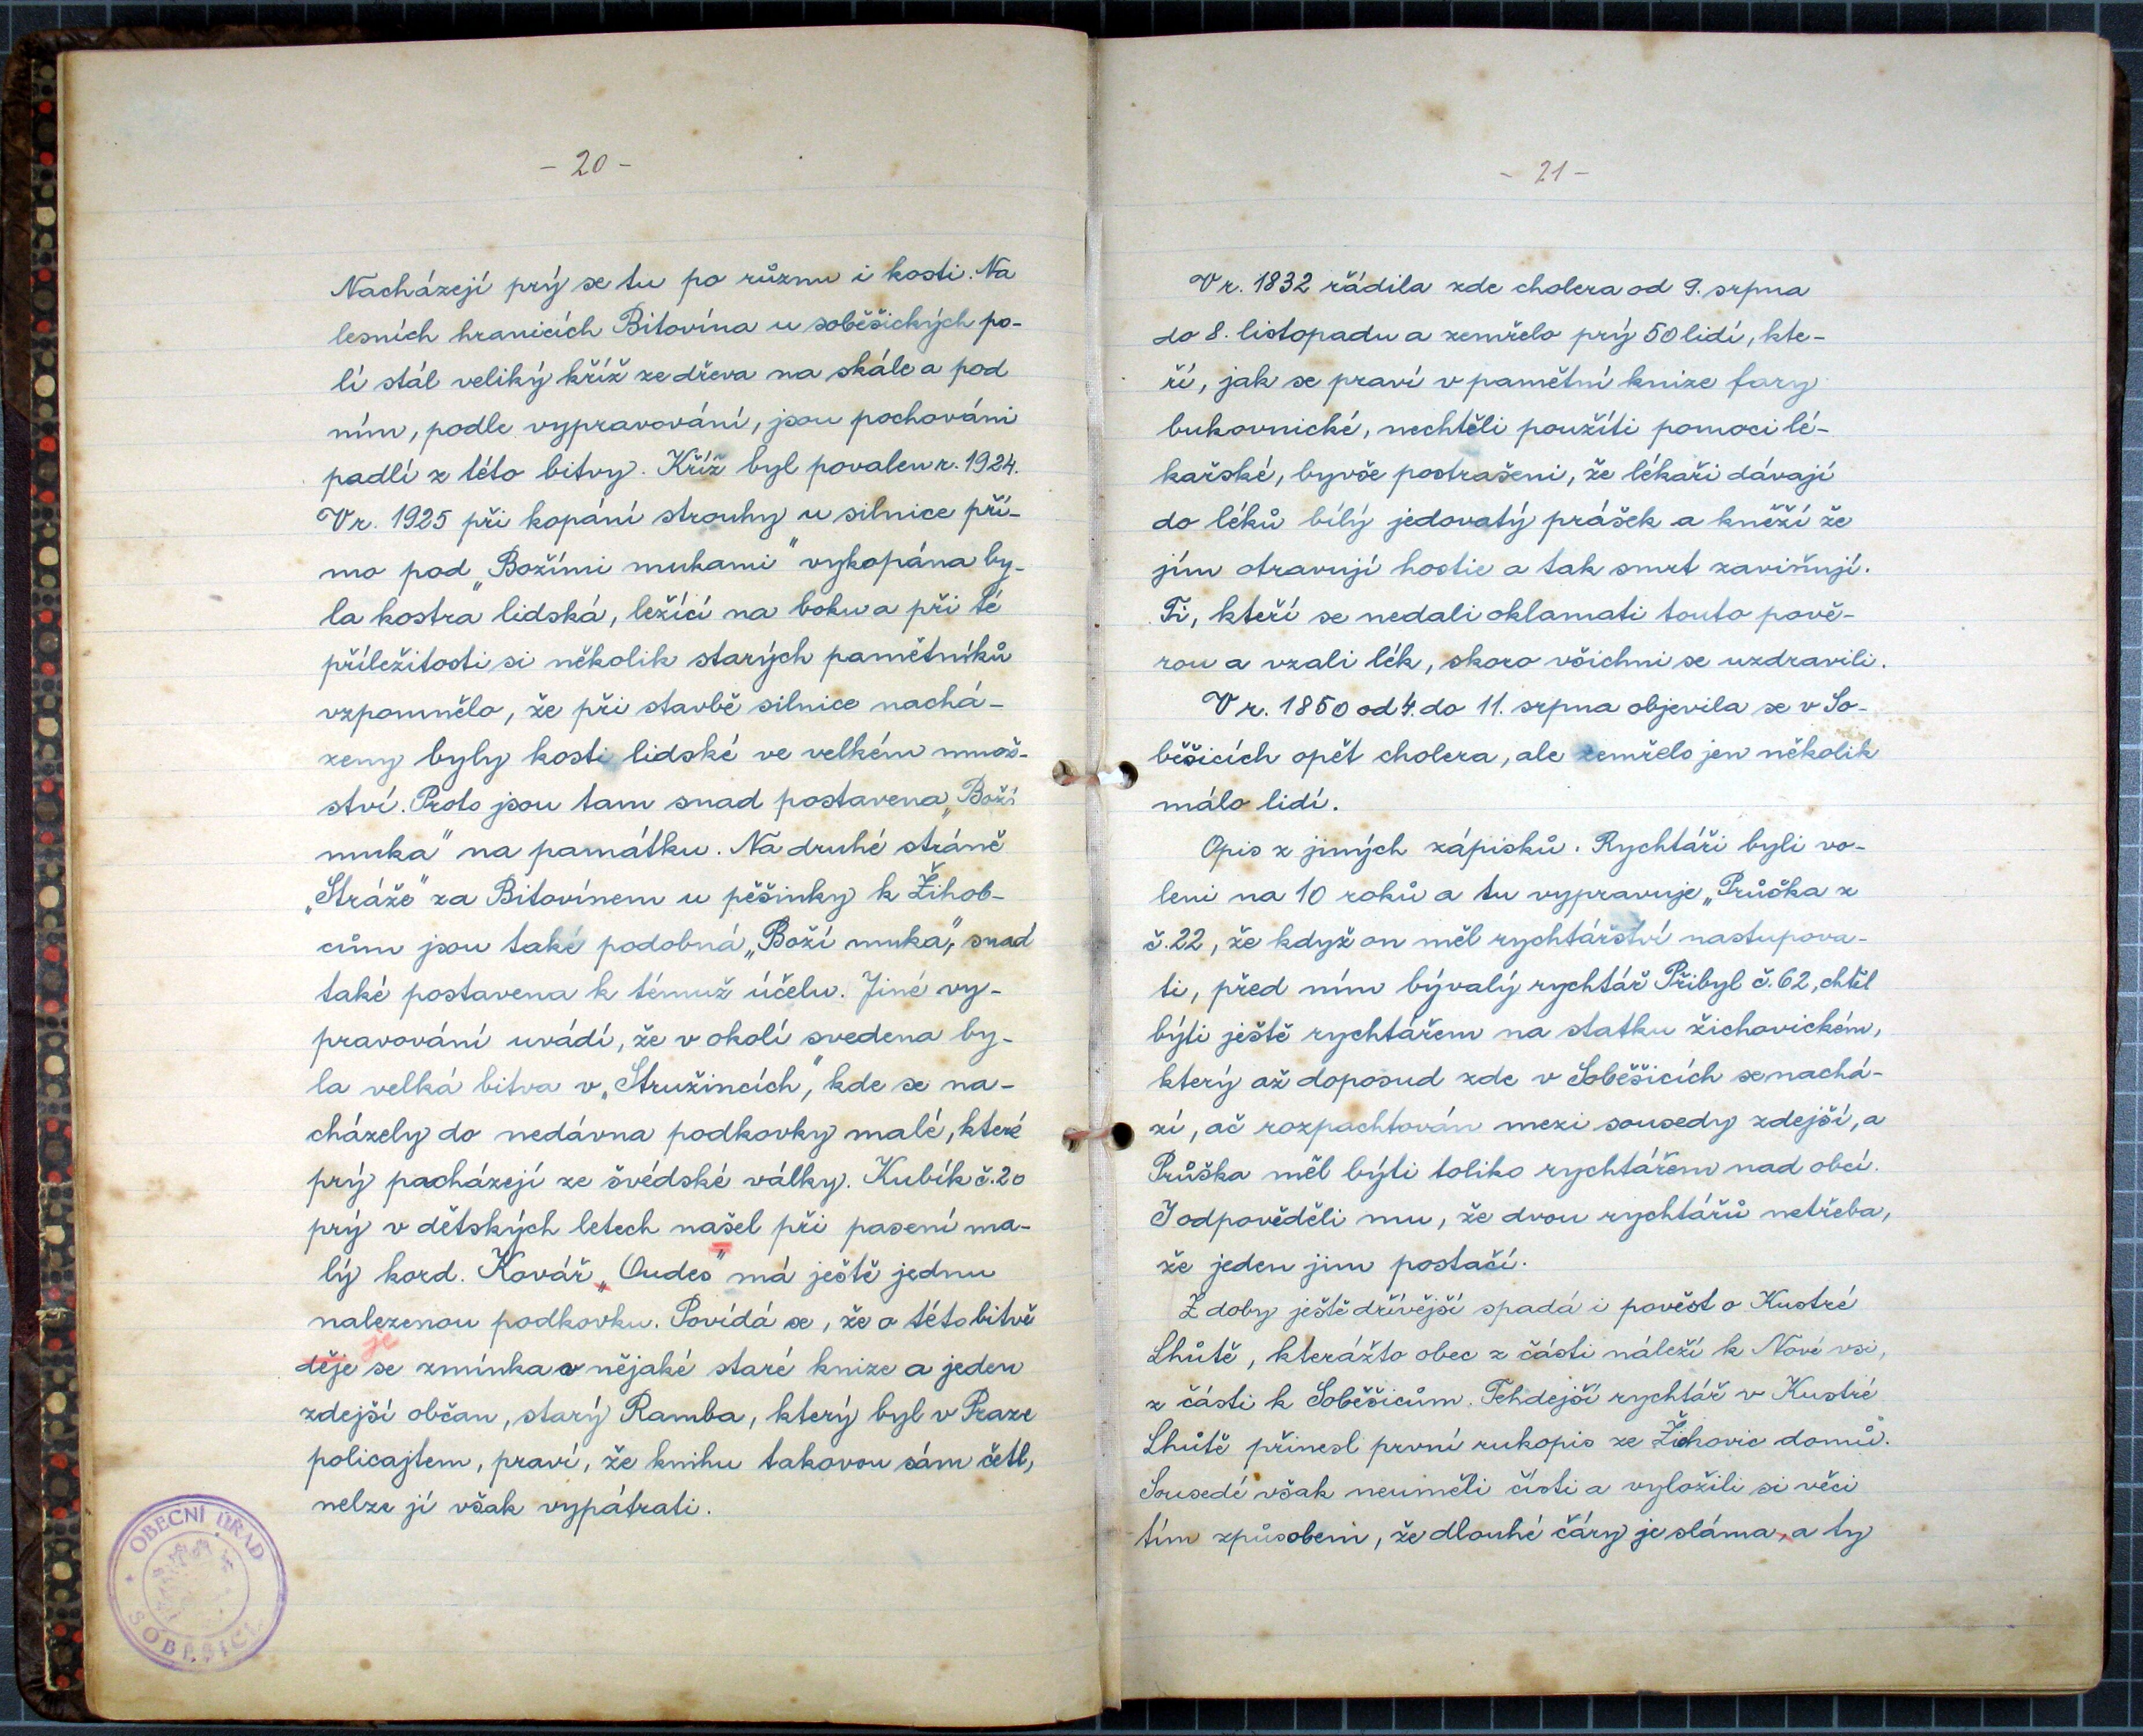 - 20 -
Nacházejí prý se tu po různu i kosti. Na
lesních hranicích Bitovína u soběšických po-
lí stál veliký kříž ze dřeva na skále a pod
ním, podle vypravování, jsou pochováni
padlí z této bitvy. Kříž byl povalen r. 1924.
V r. 1925 při kopání strouhy u silnice pří-
mo pod „Božími mukami" vykopána by-
la kostra lidská, ležící na boku a při té
příležitosti si několik starých pamětníků
vzpomnělo, že při stavbě silnice nachá-
zeny byly kosti lidské ve velkém množ-
ství. Proto jsou tam snad postavena „Boží
muka" na památku. Na druhé stráně
„Stráže" za Bitovínem u pěšinky k Žihob-
cům jsou také podobná „Boží muka", snad
také postavena k témuž účelu. Jiné vy-
pravování uvádí, že v okolí svedena by-
la velká bitva v „Stružincích", kde se na-
cházely do nedávna podkovky malé, které
prý pacházejí ze švédské války. Kubík č. 20
prý v dětských letech našel při pasení ma-
lý kord. Kovář „Oudes" má ještě jednu
nalezenou podkovku. Povídá se, že o této bitvě
je
děje se zmínka v nějaké staré knize a jeden
zdejší občan, starý Ramba, který byl v Praze
policajtem, praví, že knihu takovou sám četl,
nelze jí však vypátrati.
OBECNÍ ÚŘAD
SOBĚŠICE
- 21 -
V r. 1832 řádila zde cholera od 9. srpna
do 8. listopadu a zemřelo prý 50 lidí, kte-
ří, jak se praví v pamětní knize fary
bukovnické, nechtěli použíti pomoci lé-
kařské, byvše postrašeni, že lékaři dávají
do léků bílý jedovatý prášek a kněží že
jím otravují hostie a tak smrt zaviňují.
Ti, kteří se nedali oklamati touto pově-
rou a vzali lék, skoro všichni se uzdravili.
V r. 1850 od 4. do 11. srpna objevila se v So-
běšicích opět cholera, ale zemřelo jen několik
málo lidí.
Opis z jiných zápisků. Rychtáři byli vo-
leni na 10 roků a tu vypravuje „Průška z
č. 22, že když on měl rychtářství nastupova-
ti, před ním bývalý rychtář Přibyl č. 62, chtěl
býti ještě rychtářem na statku žichovickém,
který až doposud zde v Soběšicích se nachá-
zí, ač rozpachtován mezi sousedy zdejší, a
Průška měl býti toliko rychtářem nad obcí.
I odpověděli mu, že dvou rychtářů netřeba,
že jeden jim postačí.
Z doby ještě dřívější spadá i pověst o Kustré
Lhůtě, kterážto obec z části náleží k Nové vsi,
z části k Soběšicům. Tehdejší rychtář v Kustré
Lhůtě přinesl první rukopis ze Žichovic domů.
Sousedé však neuměli čísti a vyložili si věci
tím způsobem, že dlouhé čáry je sláma, a ty